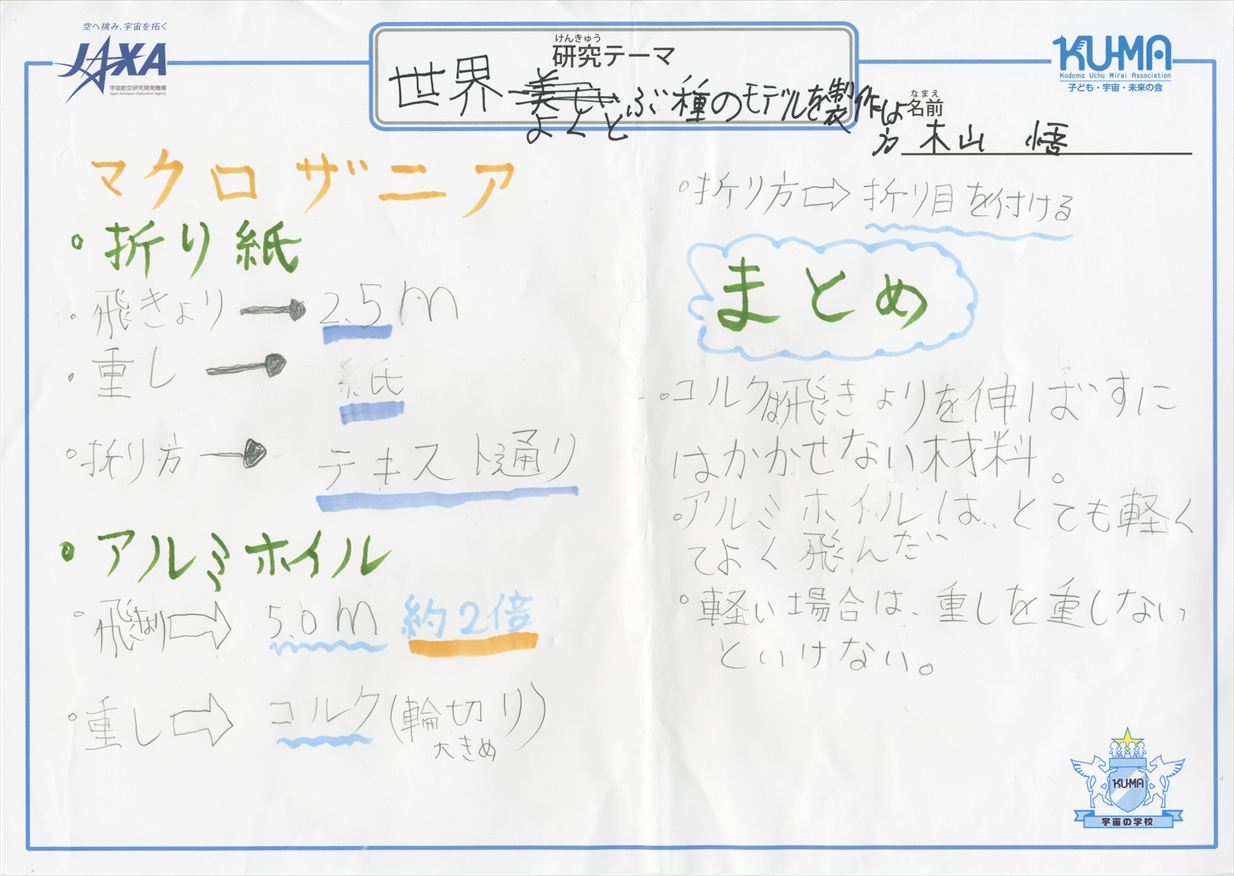 空へ挑み、宇宙を拓く
JAXA
宇宙航空研究開発機構
Japan Aerospace Exploration Agency
けんきゅう
研究テーマ
世界美しいぶ種のモデルを製作しよ
よくと
う
KU-MA
Kodomo Uchu Mirai Association
子ども・宇宙・未来の会
なまえ
名前
木山 悟
マクロザニア
・折り紙
・飛きょり→2.5m
・重し→紙
・折り方→テキスト通り
・アルミホイル
・飛きょり⇨5.0m 約2倍
・重し⇨コルク(輪切り)
大きめ
・折り方⇨折り目を付ける
まとめ
・コルクは飛きょりを伸ばすに
はかかせない材料。
・アルミホイルは、とても軽く
てよく飛んだ
・軽い場合は、重しを重しない
といけない。
KU-MA
宇宙の学校